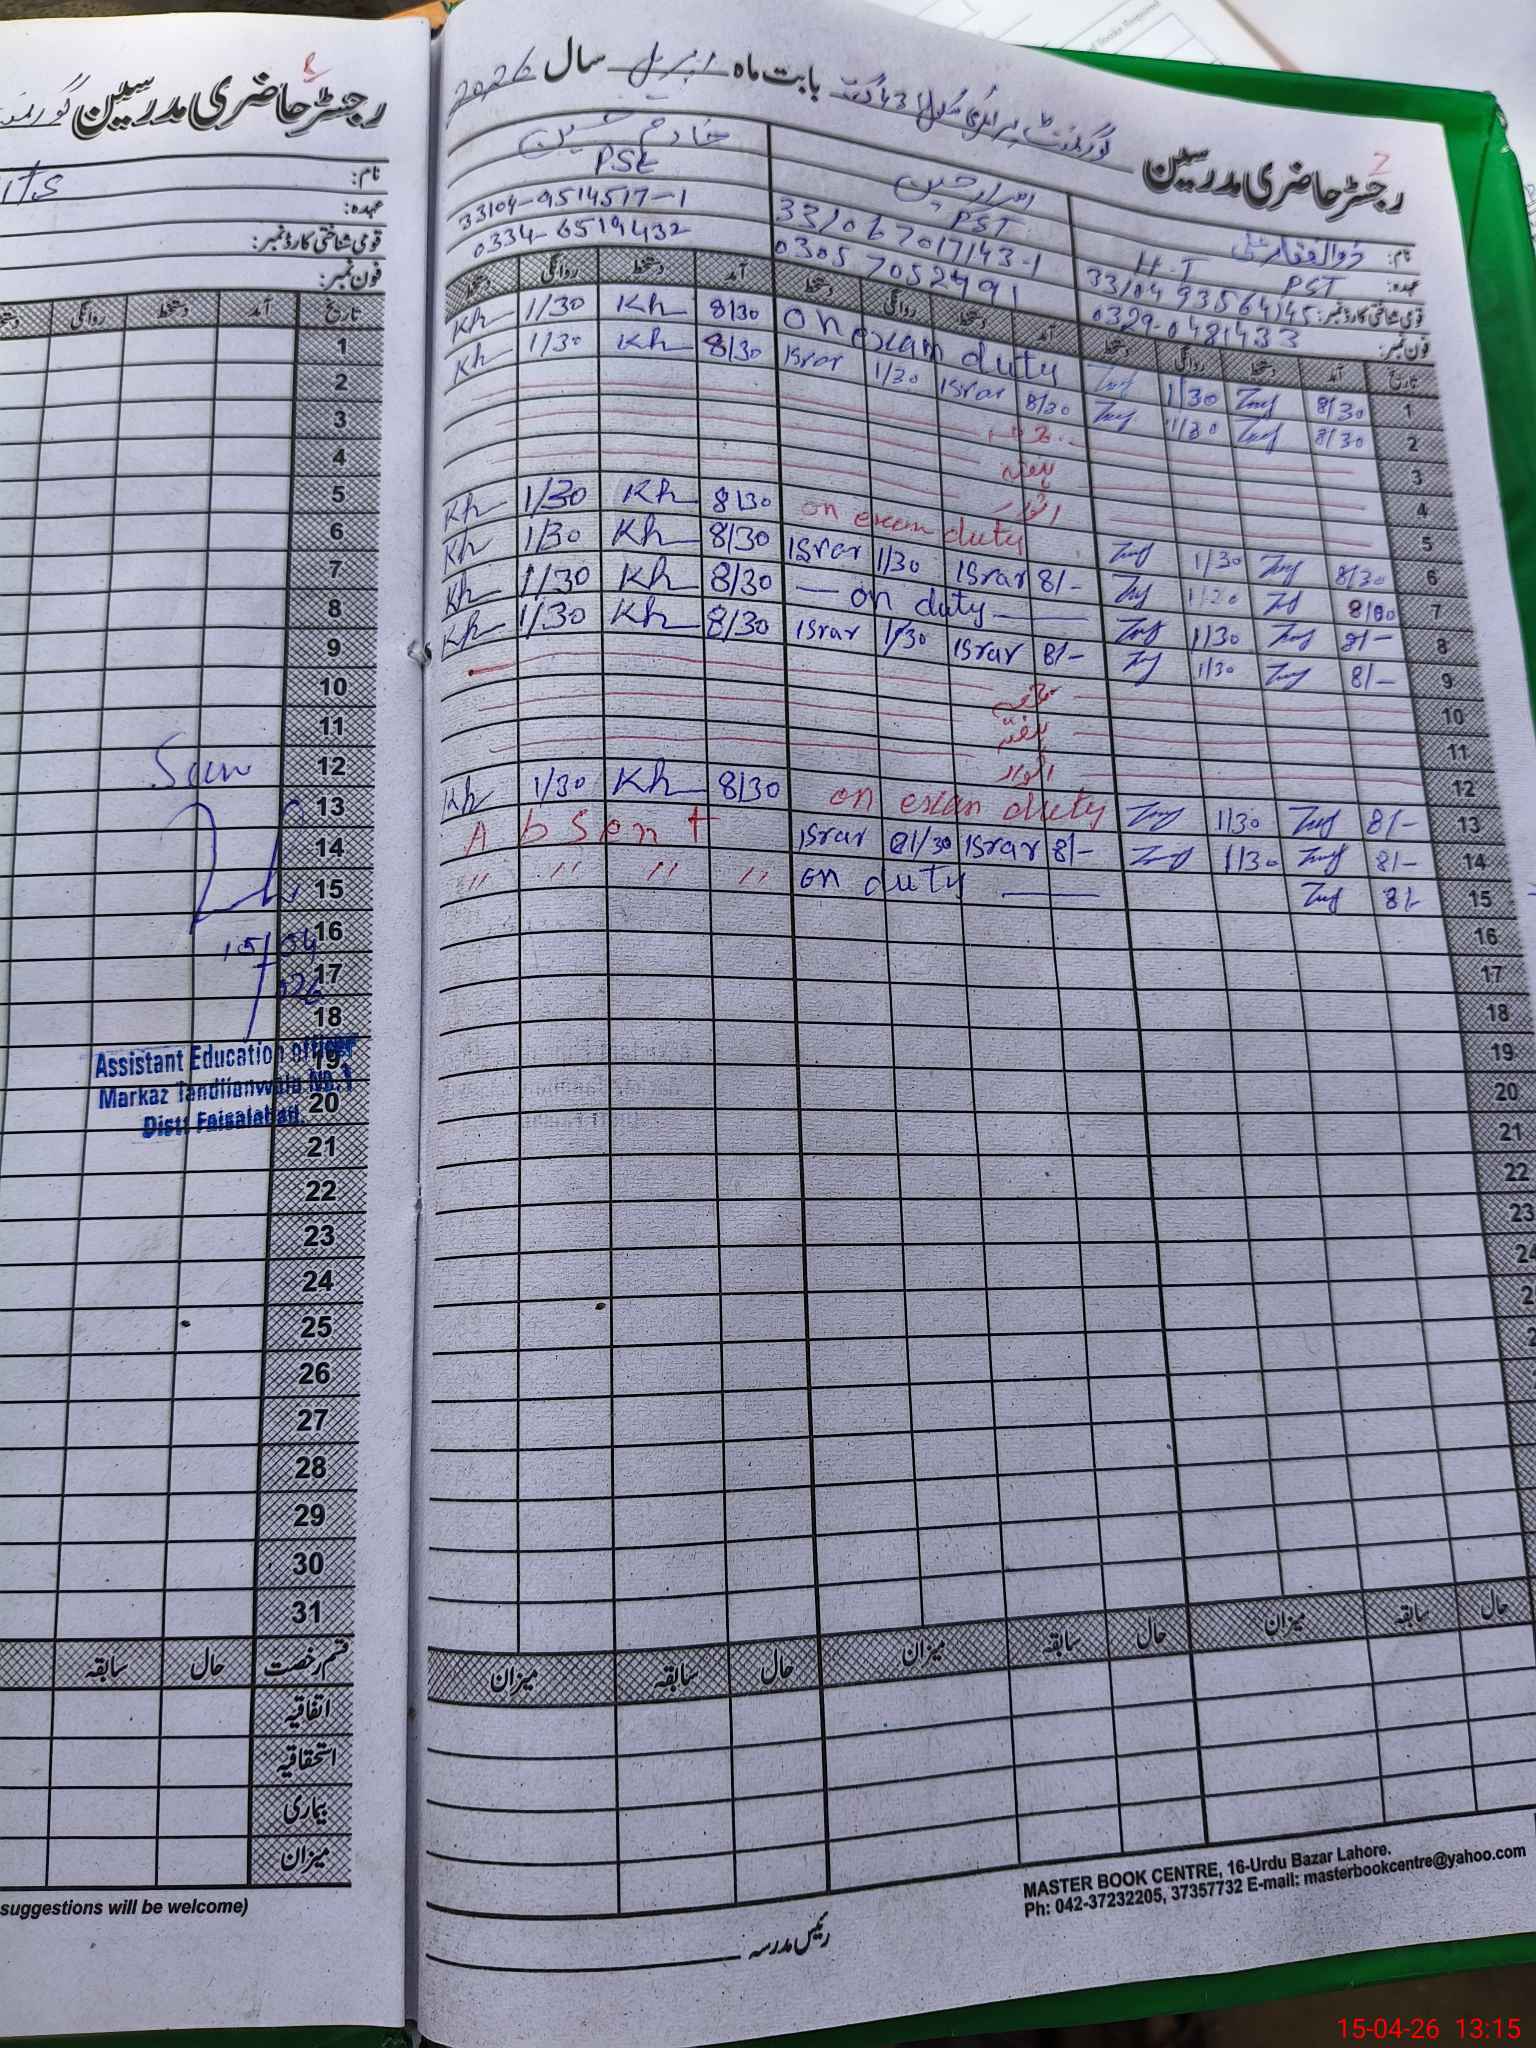 رجسٹر حاضری مدرسین
نام:
عہدہ:
قومی شناختی کارڈ نمبر:
فون نمبر:
تاریخ آمد دستخط روانگی دستخط
1
2
3
4
5
6
7
8
9
10
11
12
13
14
15
16
17
18
19
20
21
22
23
24
25
26
27
28
29
30
31
Seen
15/04
26
Assistant Education officer
Markaz Tandlianwala No.1
Distt Faisalabad.
قسم رخصت حال سابقہ
اتفاقیہ
استحقاقیہ
بیماری
میزان
suggestions will be welcome)
رجسٹر حاضری مدرسین گورنمنٹ پرائمری سکول 431 گ ب بابت ماہ اپریل سال 2026
نام: ذوالفقار علی اسرار حسین خادم حسین
عہدہ: PST H.T PST PSE
قومی شناختی کارڈ نمبر: 33106 7017143-1 33104-9514517-1
فون نمبر: 0329-0481433 0305 7052991 0334-6519432
تاریخ آمد دستخط روانگی دستخط آمد دستخط روانگی دستخط آمد دستخط روانگی دستخط
Kh 1/30 Kh 8/30 on exam duty 1/30 8/30 1
Kh 1/30 Kh 8/30 Israr 1/30 Israr 8/30 1/30 8/30 2
3
ہفتہ 4
اتوار 5
Kh 1/30 Kh 8/30 on exam duty 1/30 8/30 6
Kh 1/30 Kh 8/30 Israr 1/30 Israr 8/- 7
Kh 1/30 Kh 8/30 — on duty — 1/30 8/- 8
Kh 1/30 Kh 8/30 Israr 1/30 Israr 8/- 1/30 8/- 9
10
ہفتہ 11
اتوار 12
Kh 1/30 Kh 8/30 on exam duty 1/30 8/- 13
Absent Israr 1/30 Israr 8/- 1/30 8/- 14
" " " " on duty — 8/- 15
16
17
18
19
20
21
22
23
24
میزان سابقہ حال میزان سابقہ حال میزان سابقہ حال
رئیس مدرسہ
MASTER BOOK CENTRE, 16-Urdu Bazar Lahore.
Ph: 042-37232205, 37357732 E-mail: masterbookcentre@yahoo.com
15-04-26 13:15